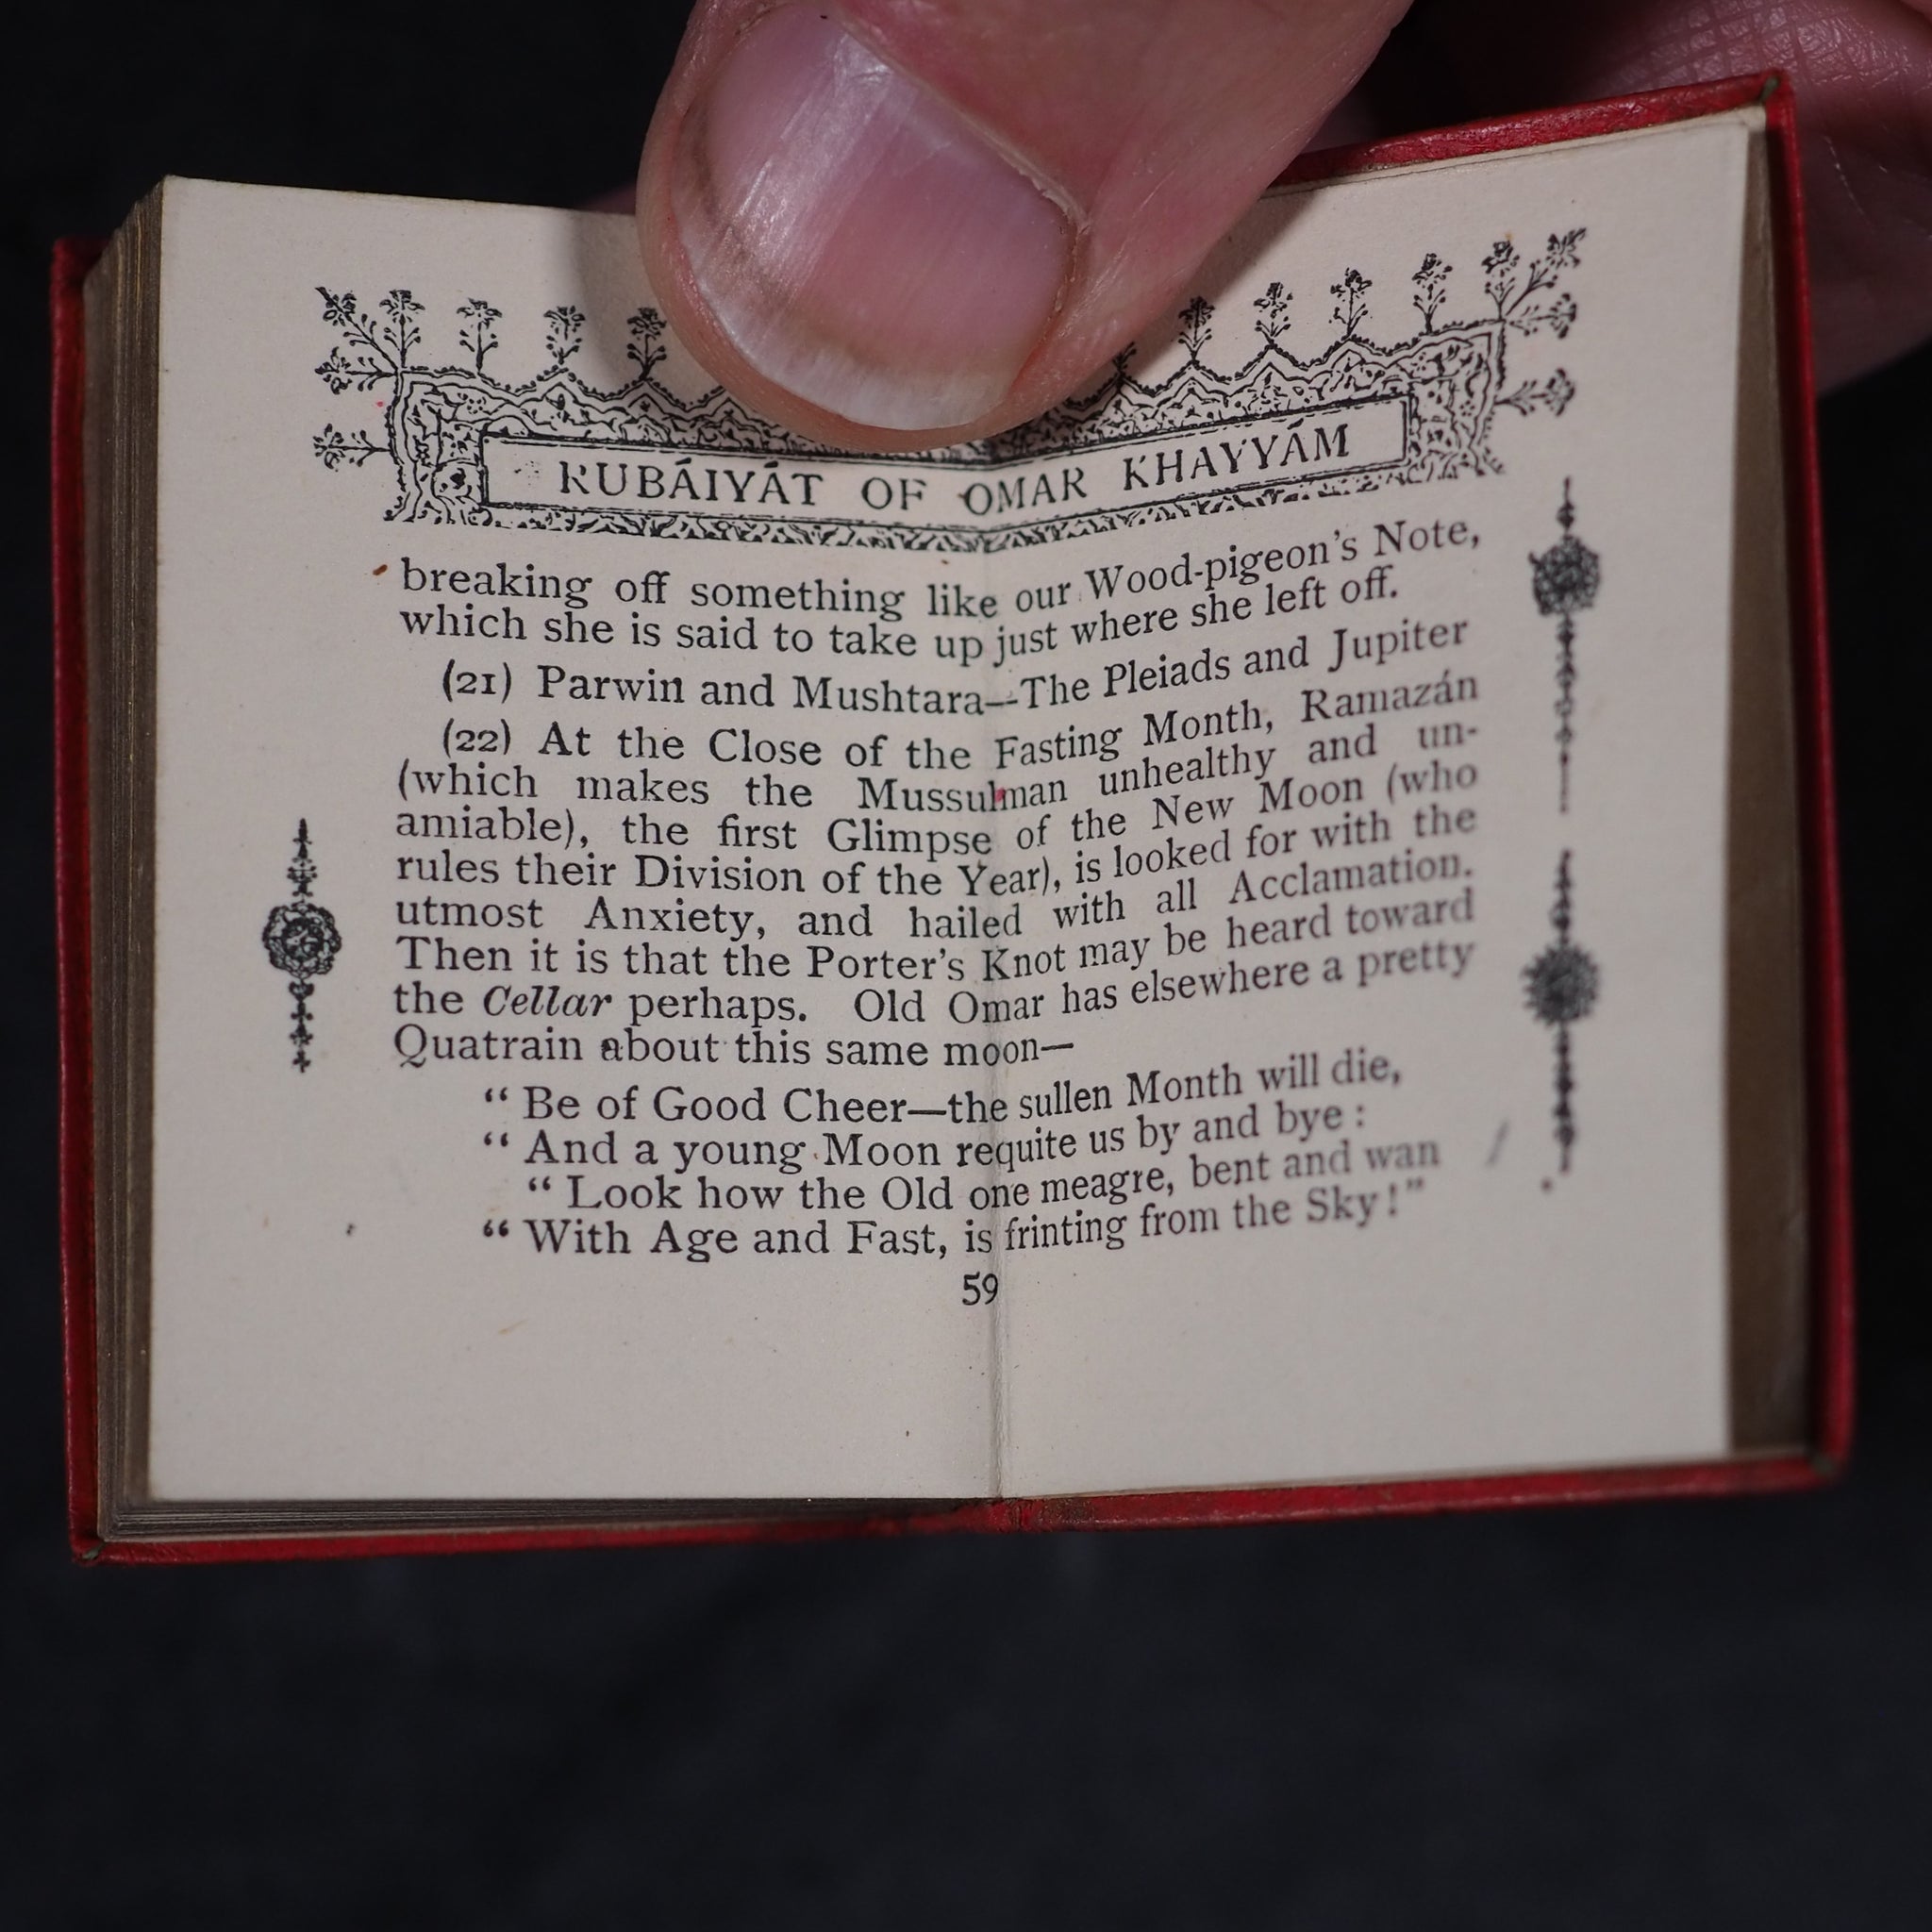 RUBÁIYÁT OF OMAR KHAYYÁM
breaking off something like our Wood-pigeon's Note,
which she is said to take up just where she left off.
(21) Parwin and Mushtara—The Pleiads and Jupiter
(22) At the Close of the Fasting Month, Ramazán
(which makes the Mussulman unhealthy and un-
amiable), the first Glimpse of the New Moon (who
rules their Division of the Year), is looked for with the
utmost Anxiety, and hailed with all Acclamation.
Then it is that the Porter's Knot may be heard toward
the Cellar perhaps. Old Omar has elsewhere a pretty
Quatrain about this same moon—
“Be of Good Cheer—the sullen Month will die,
“And a young Moon requite us by and bye:
“Look how the Old one meagre, bent and wan
“With Age and Fast, is frinting from the Sky!”
59